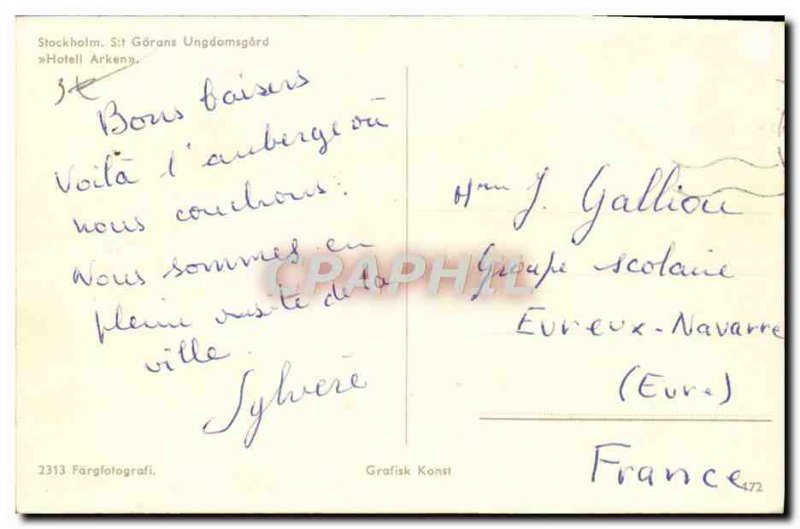 Stockholm. S:t Görans Ungdomsgård
»Hotell Arken».
3€
Bons baisers
Voilà l'auberge où
nous couchons.
Nous sommes en
pleine visite de la
ville.
Sylvère
2313 Färgfotografi.
Grafisk Konst
J. Galliou
Groupe scolaire
Evreux-Navarre
(Eure)
France
472
CPRAPHIL